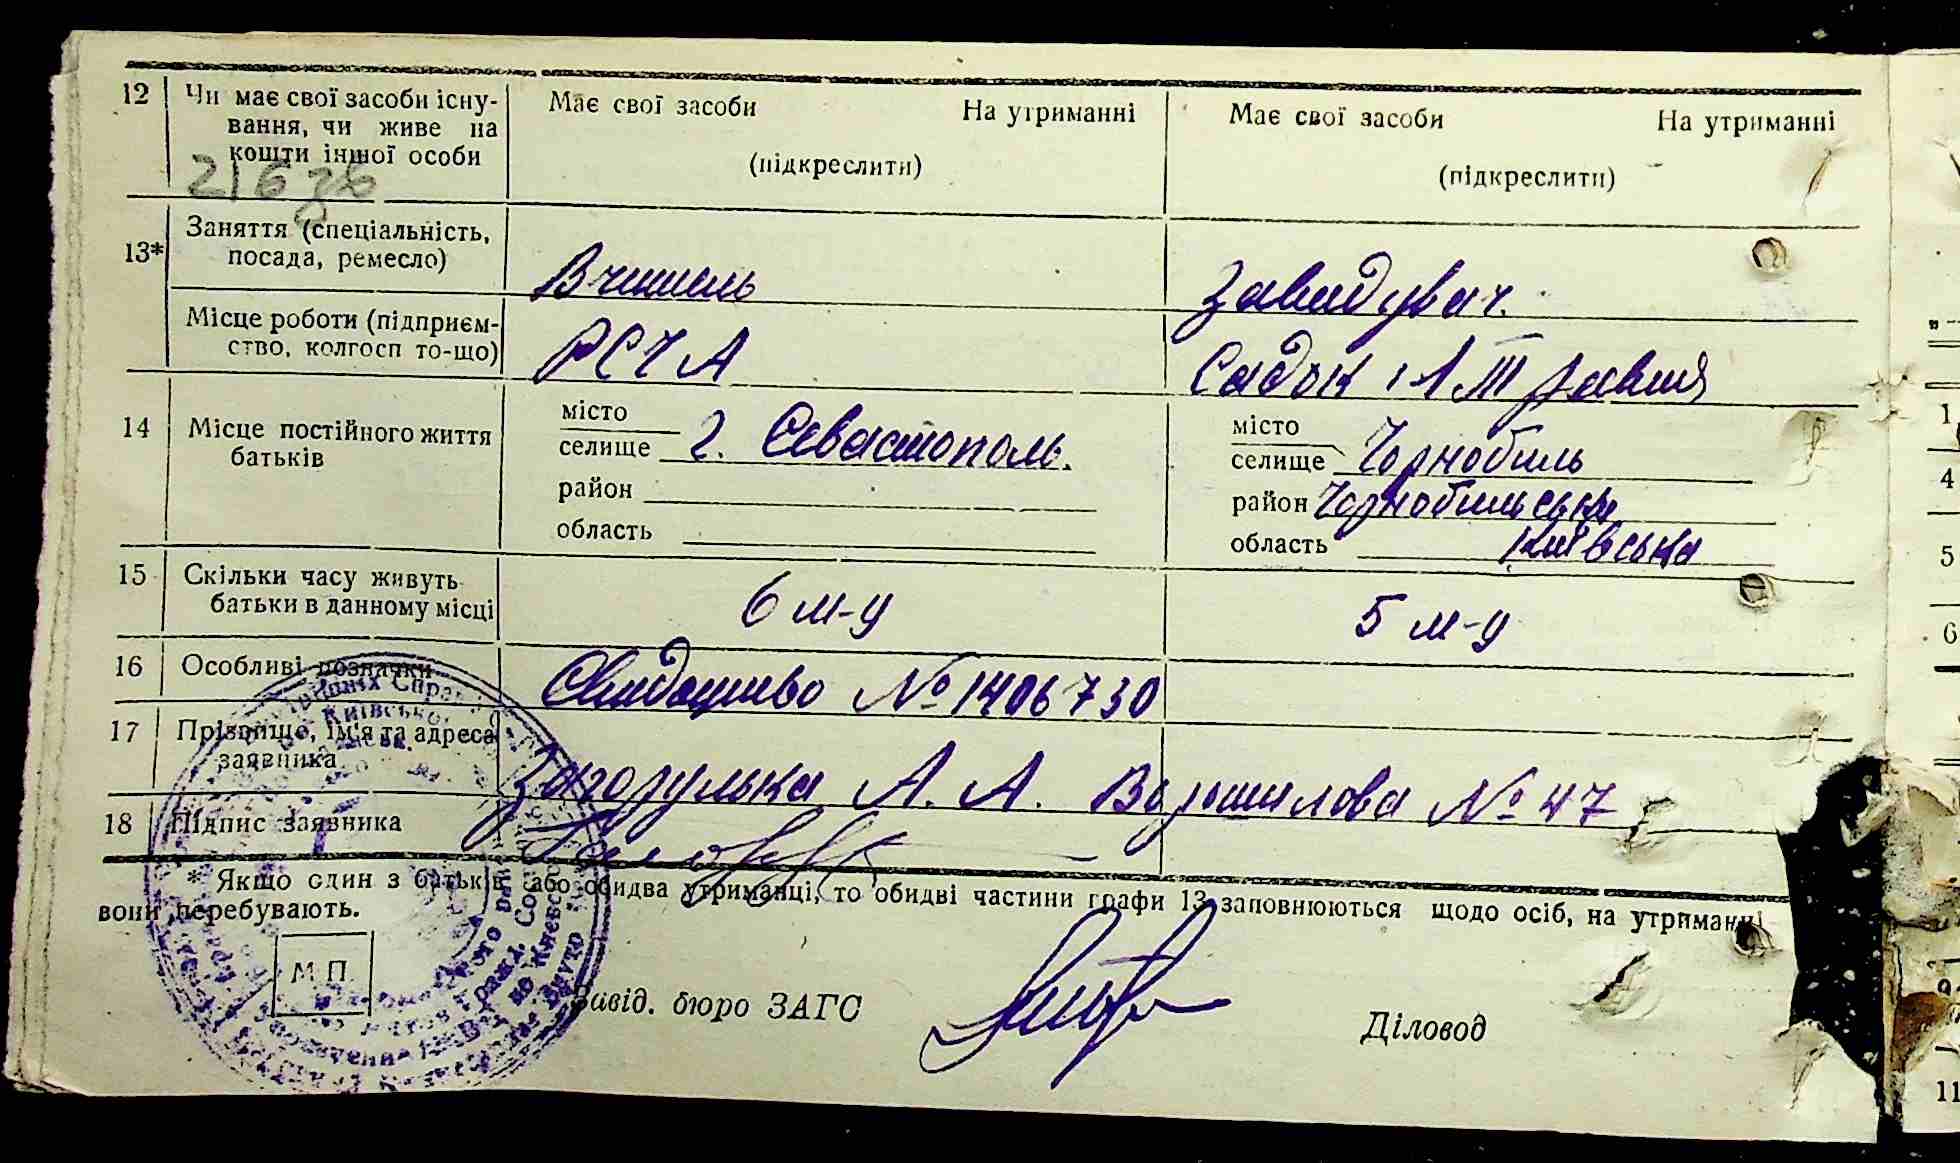 12 Чи має свої засоби існу-
вання, чи живе на
кошти іншої особи
Має свої засоби На утриманні
(підкреслити)
Має свої засоби На утриманні
(підкреслити)
13* Заняття (спеціальність,
посада, ремесло)
Вчитель
Завидувач.
Місце роботи (підприєм-
ство, колгосп то-що)
РСЧА
Садок 1 Травня
14 Місце постійного життя
батьків
місто
селище г. Севастополь.
район
область
місто
селище Чорнобиль
район Чорнобильськи
область Київська
15 Скільки часу живуть
батьки в данному місці
6 м-у
5 м-у
16 Особливі розначки
Свидоцтво № 1406730
17 Прізвище, ім'я та адреса
заявника
Загорулька А. А. Ворошилова № 47
18 Підпис заявника
* Якщо один з батьків або обидва утриманці, то обидві частини графи 13 заповнюються щодо осіб, на утриманні
вони перебувають.
М П
Завід. бюро ЗАГС
Діловод
1
4
5
6
9
11